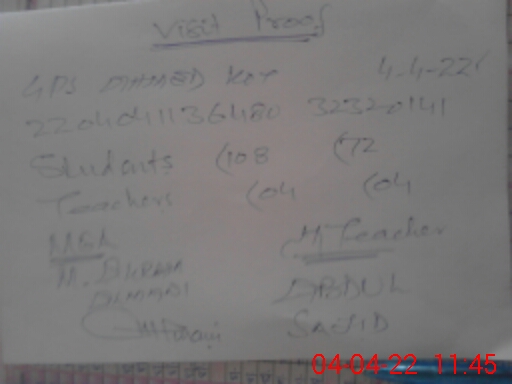 Visit Proof
GPS AHMED KOT 4-4-22
2204041136480 32320141
Students (108 (72
Teachers (04 (04
MEA H Teacher
M. AKRAM ABDUL
SAJID
04-04-22 11:45